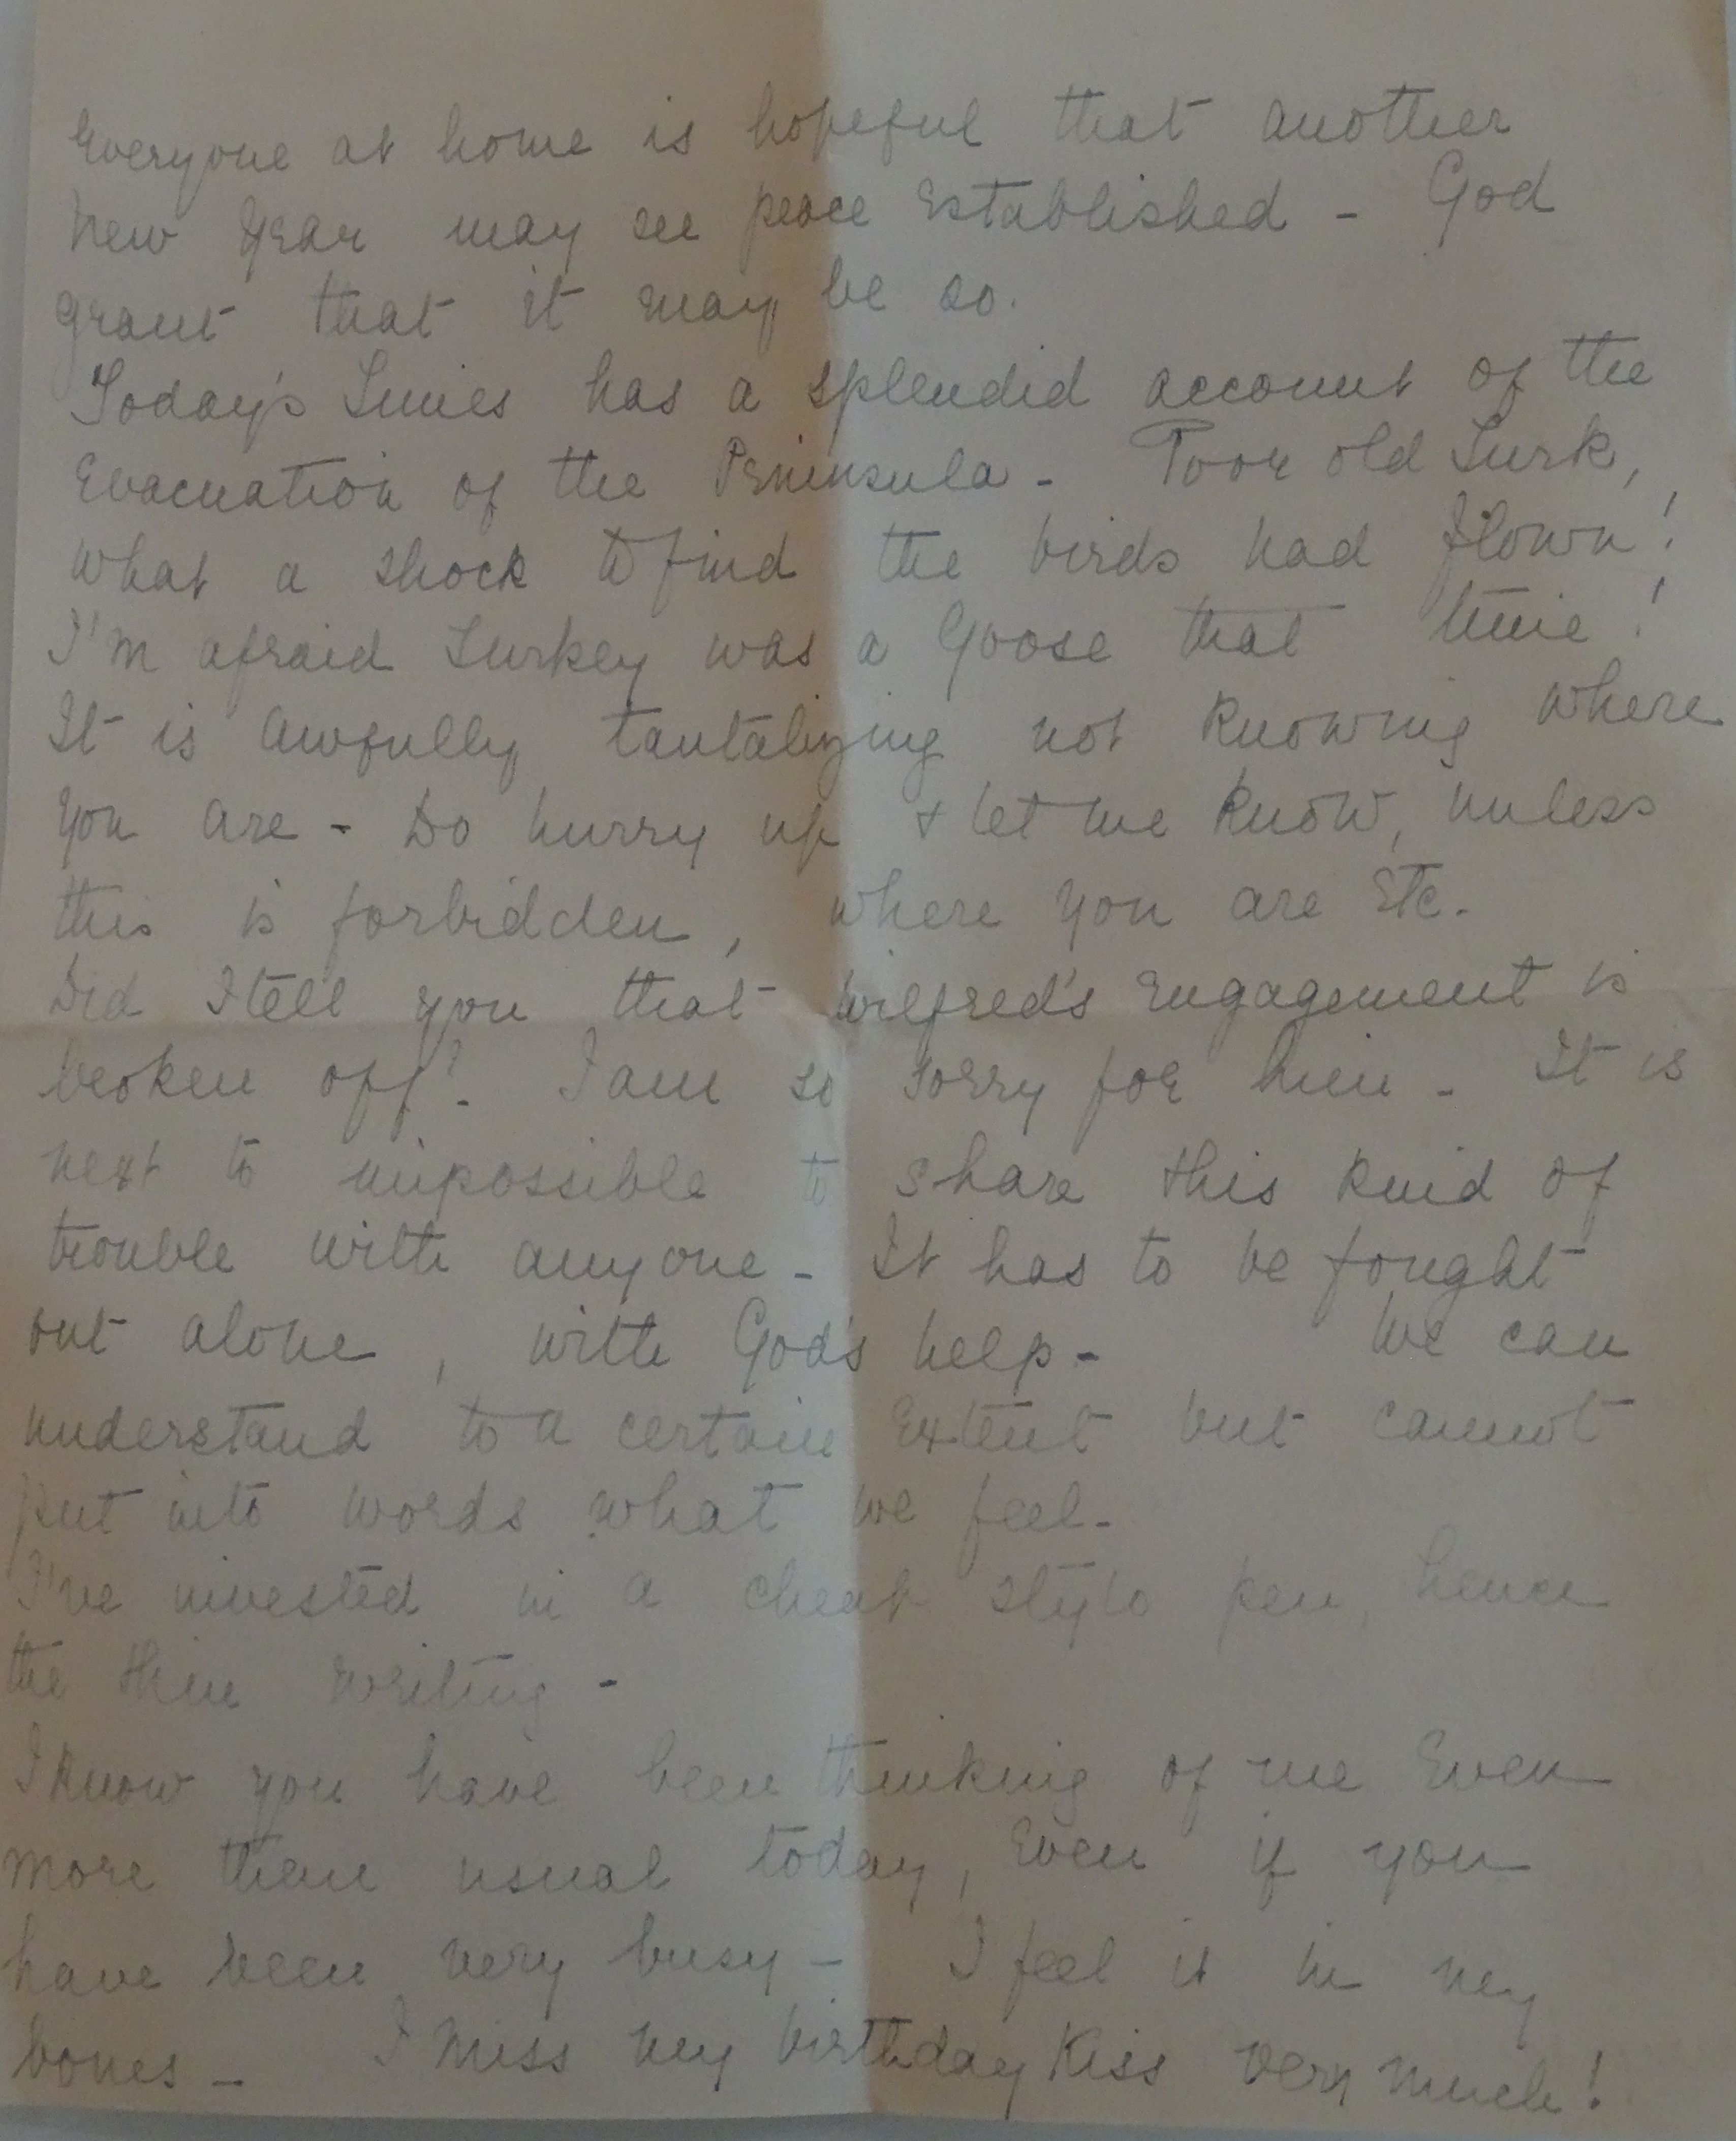 Everyone at home is hopeful that another
New Year may see peace Established - God
grant that it may be so.
Today's Times has a splendid account of the
Evacuation of the Peninsula - Poor old Turk,
what a shock to find the birds had flown!
I'm afraid Turkey was a Goose that time!
It is awfully tantalizing not knowing where
you are - Do hurry up & let me know, unless
this is forbidden, where you are Etc.
Did I tell you that Wilfred's Engagement is
broken off? - I am so sorry for him - It is
next to impossible to share this kind of
trouble with anyone - It has to be fought
out alone, with God's help - We can
understand to a certain Extent but cannot
put into words what we feel -
I've invested in a cheap stylo pen, hence
the thin writing -
I know you have been thinking of me Even
more than usual today, Even if you
have been very busy - I feel it in my
bones - I miss my birthday Kiss very much!